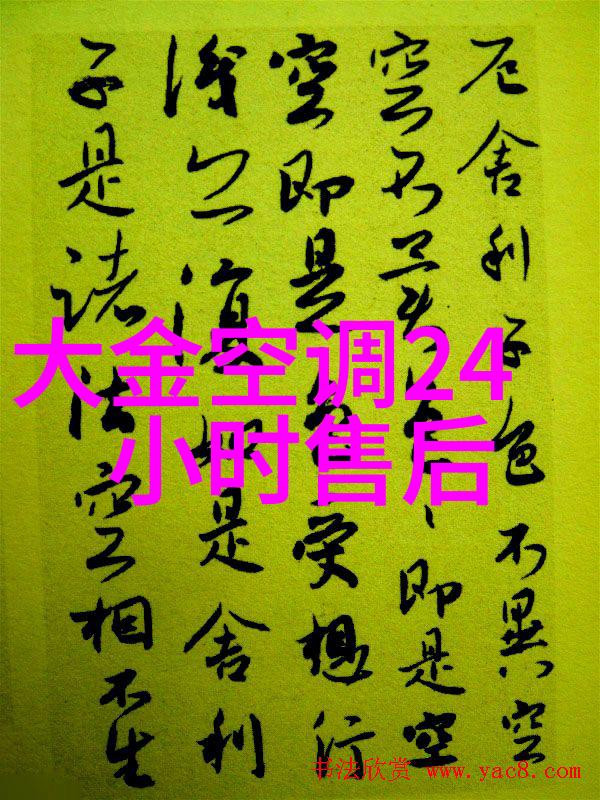 厄舍利子色不異空
空不異色色即是空
空即是色受想行
識亦復如是舍利
子是諸法空相不生
大金空调24
小时售后
书法欣赏 www.yac8.com